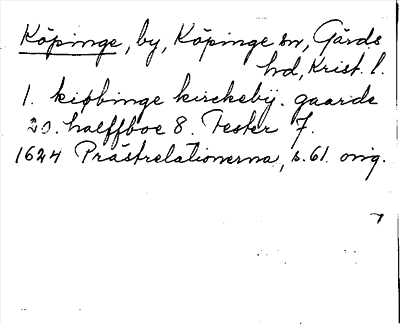 Köpinge, by, Köpinge sn, Gärds
hd, Krist. l.
1. kiøbinge kirckebÿ. gaarde
20. halffboe 8. Fester 7.
1624 Prästrelationerna, s. 61. orig.